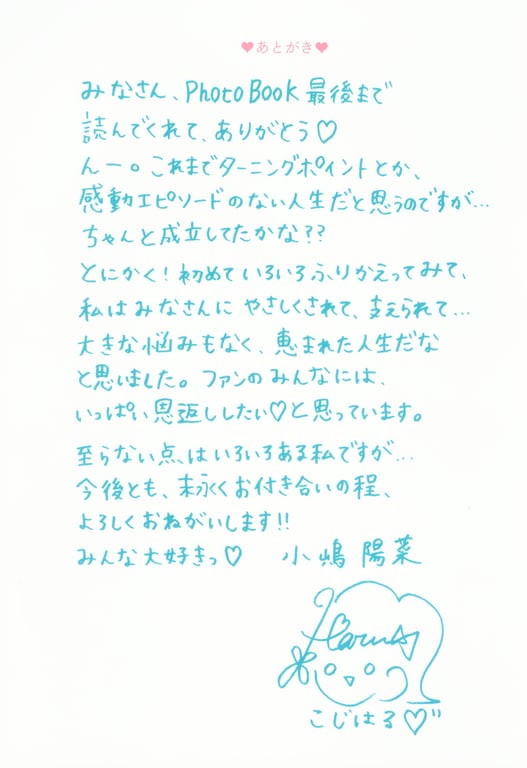 ♥あとがき♥
みなさん、PhotoBook最後まで
読んでくれて、ありがとう♡
んー。これまでターニングポイントとか、
感動エピソードのない人生だと思うのですが…
ちゃんと成立してたかな??
とにかく!初めていろいろふりかえってみて、
私はみなさんにやさしくされて、支えられて…
大きな悩みもなく、恵まれた人生だな
と思いました。ファンのみんなには、
いっぱい恩返ししたい♡と思っています。
至らない点、はいろいろある私ですが…
今後とも、末永くお付き合いの程、
よろしくおねがいします!!
みんな大好きっ♡ 小嶋陽菜
Haruna
こじはる♡"